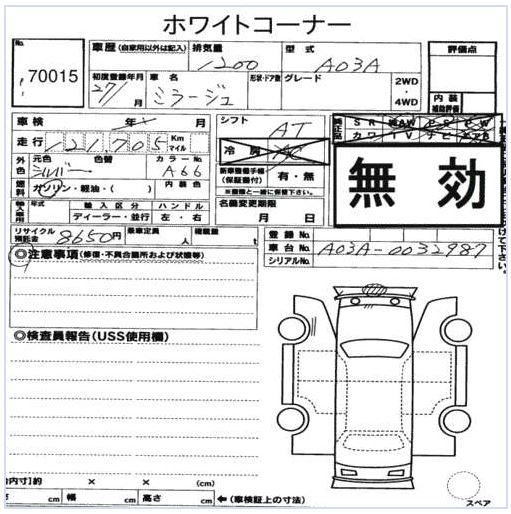 ホワイトコーナー
No. 70015
車歴 (自家用以外は記入) 排気量 1200 型式 A03A 評価点
初度登録年月 27/ 月 車名 ミラージュ 形状・ドア数 グレード 2WD ・ 4WD 内装 補助評価
車検 年 月 シフト AT 純正品 SR AW PS PW
走行 121,705 Km マイル 冷房 AC カワ TV ナビ エアB
外色 元色 シルバー 色替 カラーNo. A66 新車整備手帳 (保証書付) 有・無 無効
燃料 ガソリン・軽油・( ) 内装色 ※書類と一緒に保管下さい。
輸入車用 年式 輸入区分 ハンドル 名義変更期限
ディーラー・並行 左・右 月 日
リサイクル預託金 8650円 乗車定員 人 積載量 t 登録No.
車台No. A03A-0032987
シリアルNo.
◎注意事項 (修復・不具合箇所および状態等)
◎検査員報告 (USS使用欄)
内寸)約 × × (cm)
さ cm 幅 cm 高さ cm ← (車検証上の寸法)
スペア